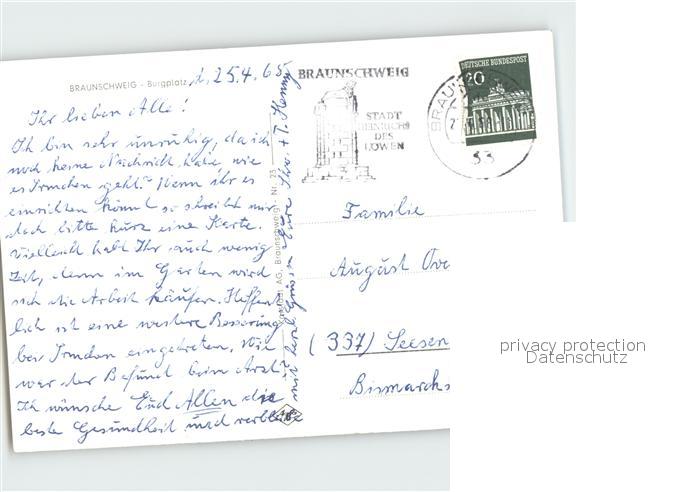 BRAUNSCHWEIG - Burgplatz
d. 25.4.65
Ihr lieben Alle!
Ich bin sehr unruhig, da ich
noch keine Nachricht habe wie
es Irmchen geht. Wenn ihr es
einrichten könnt so schreibt mir
doch bitte kurz eine Karte.
Vielleicht habt Ihr auch wenig
Zeit, denn im Garten wird
sich die Arbeit häufen. Hoffent
lich ist eine weitere Besserung
bei Irmchen eingetreten. Wie
war der Befund beim Arzt?
Ich wünsche Euch Allen die
beste Gesundheit und verbleibe
mit herzl. Grüssen Eure
AG, Braunschweig Nr. 23
BRAUNSCHWEIG
STADT
HEINRICHS
DES
LÖWEN
BRAUN
33
DEUTSCHE BUNDESPOST
20
Familie
August
(337) Seesen
Bismarcks
privacy protection
Datenschutz